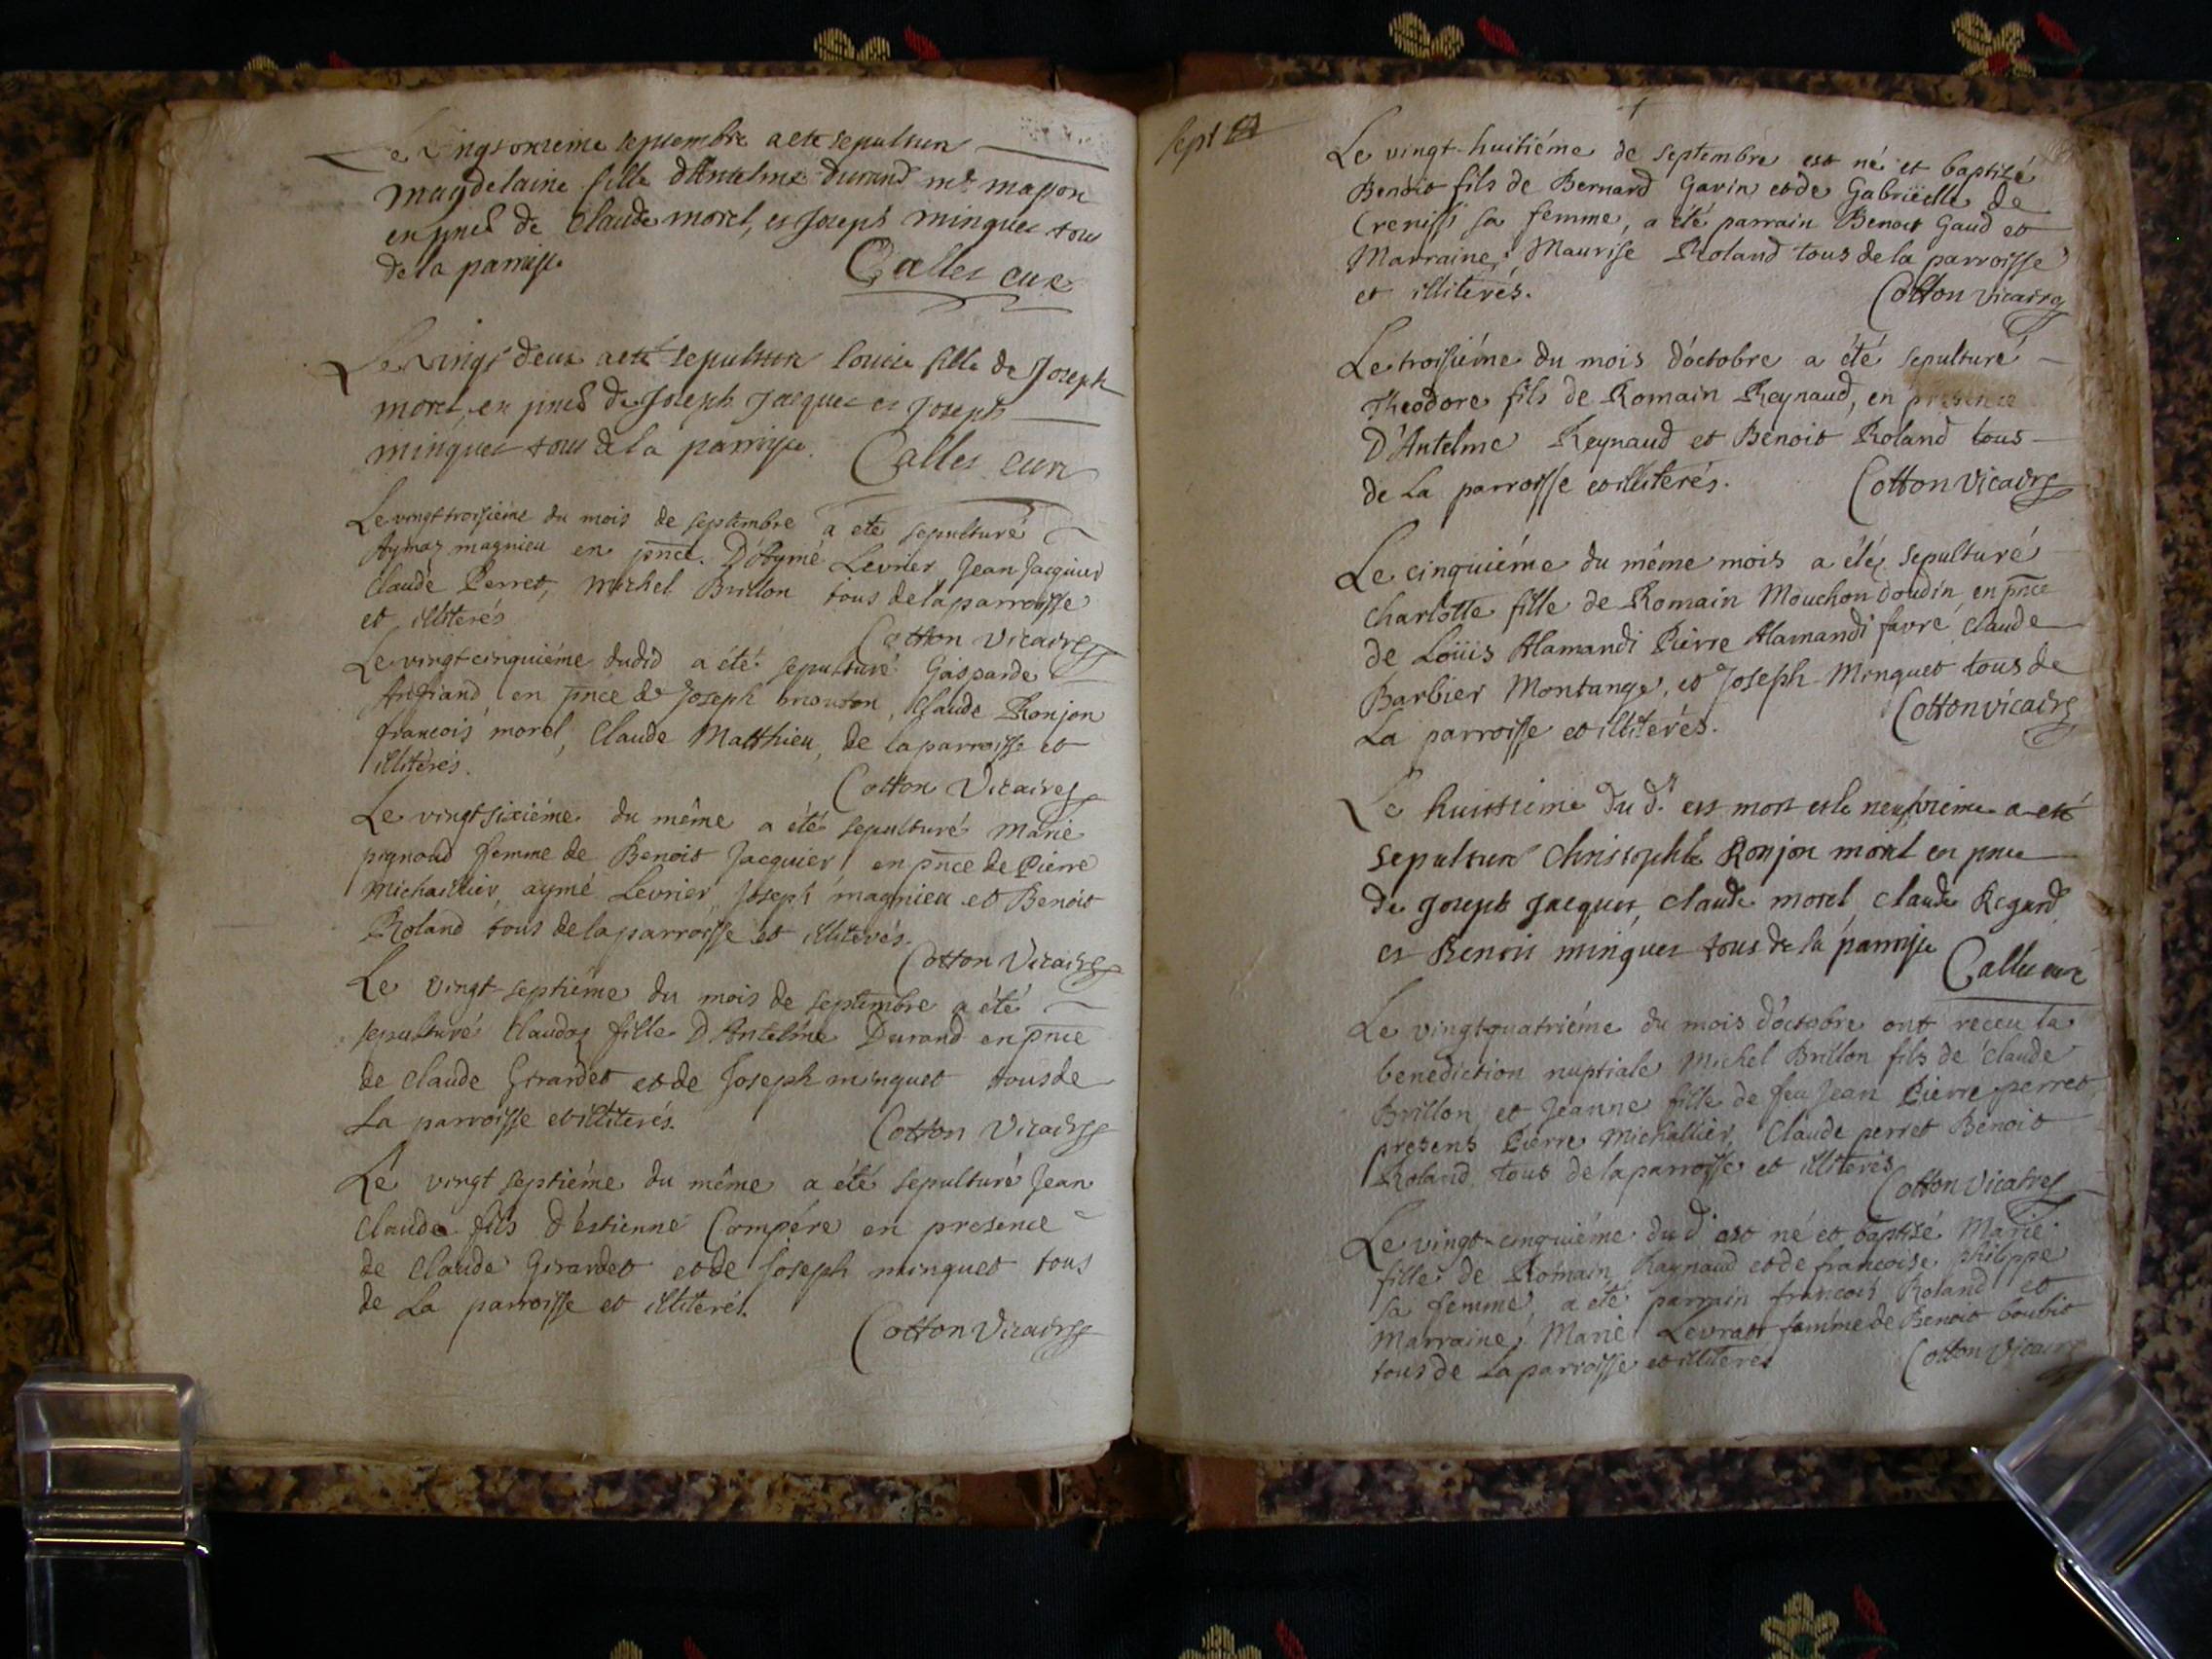 Le vingtonzieme septembre a eté sepulture
magdelaine fille d'Antelme durand mt masson
en pnce de Claude morel, et Joseph minguet tous
de la parroisse
Calles curé
Le vingt deux a eté sepulture louise fille de Joseph
morel, en pnce de Joseph Jacques et Joseph
minguet tous de la parroisse.
Calles curé
Le vingt troisiéme du mois de septembre a eté sepulturé
Aymaz magnieu en pnce. D'Aymé Levrier, Jean Jacquier
Claude Perret, Michel Brillon tous de la parroisse
et illiterés
Cotton Vicaire
Le vingt cinquiéme dudid a été sepulturé Gasparde
en pnce de Joseph mouton, Claude Ronjon
francois morel, Claude Matthieu, de la parroisse et
illiterés.
Cotton Vicaire
Le vingt sixiéme du même a été sepulturé Marie
pignoud femme de Benoit Jacquier, en pnce de Pierre
Michaillier, aymé Levrier, Joseph magnieu et Benoit
Roland tous de la parroisse et illiterés.
Cotton Vicaire
Le vingt-septiéme du mois de septembre a été
sepulturé Claudaz fille D'Antelme Durand en pnce
de Claude Girardet et de Joseph minguet tous de
La parroisse et illiterés.
Cotton Vicaire
Le vingt septiéme du même a été sepulturé Jean
Claude fils d'estienne Compére en presence
de Claude Girardet et de Joseph minguet tous
de La parroisse et illiterés.
Cotton Vicaire
sept
Le vingt-huitiéme de septembre est né et baptizé
Benoit fils de Bernard Gavin et de Gabriëlle de
Crenissi sa femme, a été parrain Benoit Gaud et
Marraine, Maurise Roland tous de la parroisse
et illiterés.
Cotton Vicaire
Le troisiéme du mois d'octobre a été sepulturé
Theodore fils de Romain Reynaud, en presence
D'Antelme Reynaud et Benoit Roland tous
de La parroisse et illiterés.
Cotton Vicaire
Le cinquiéme du même mois a été sepulturé
Charlotte fille de Romain Mouchon doudin, en pnce
de Loüis Alamandi Pierre Alamandi favre, Claude
Barbier Montange, et Joseph Minguet tous de
La parroisse et illiterés.
Cotton vicaire
Le huittieme du dt. est mort et le neufvieme a eté
sepulture Christophle Ronjon morel en pnce
de Joseph Jacques, Claude morel, Claude Regard
et Benoit minguet tous de la parroisse
Calles curé
Le vingtquatriéme du mois d'octobre ont receu la
benediction nuptiale Michel Brillon fils de Claude
Brillon, et Jeanne fille de feu Jean Pierre perret,
presens Pierre Michallier, Claude perret Benoit
Roland, tous de la parroisse et illiterés
Cotton Vicaire
Le vingt-cinquiéme dud. est né et baptizé Marie
fille de Romain Raynaud et de francoise philippe
sa femme, a eté parrain francois Roland et
Marraine, Marie Levratt femme de Benoit boubit
tous de La parroisse et illiteres
Cotton Vicaire